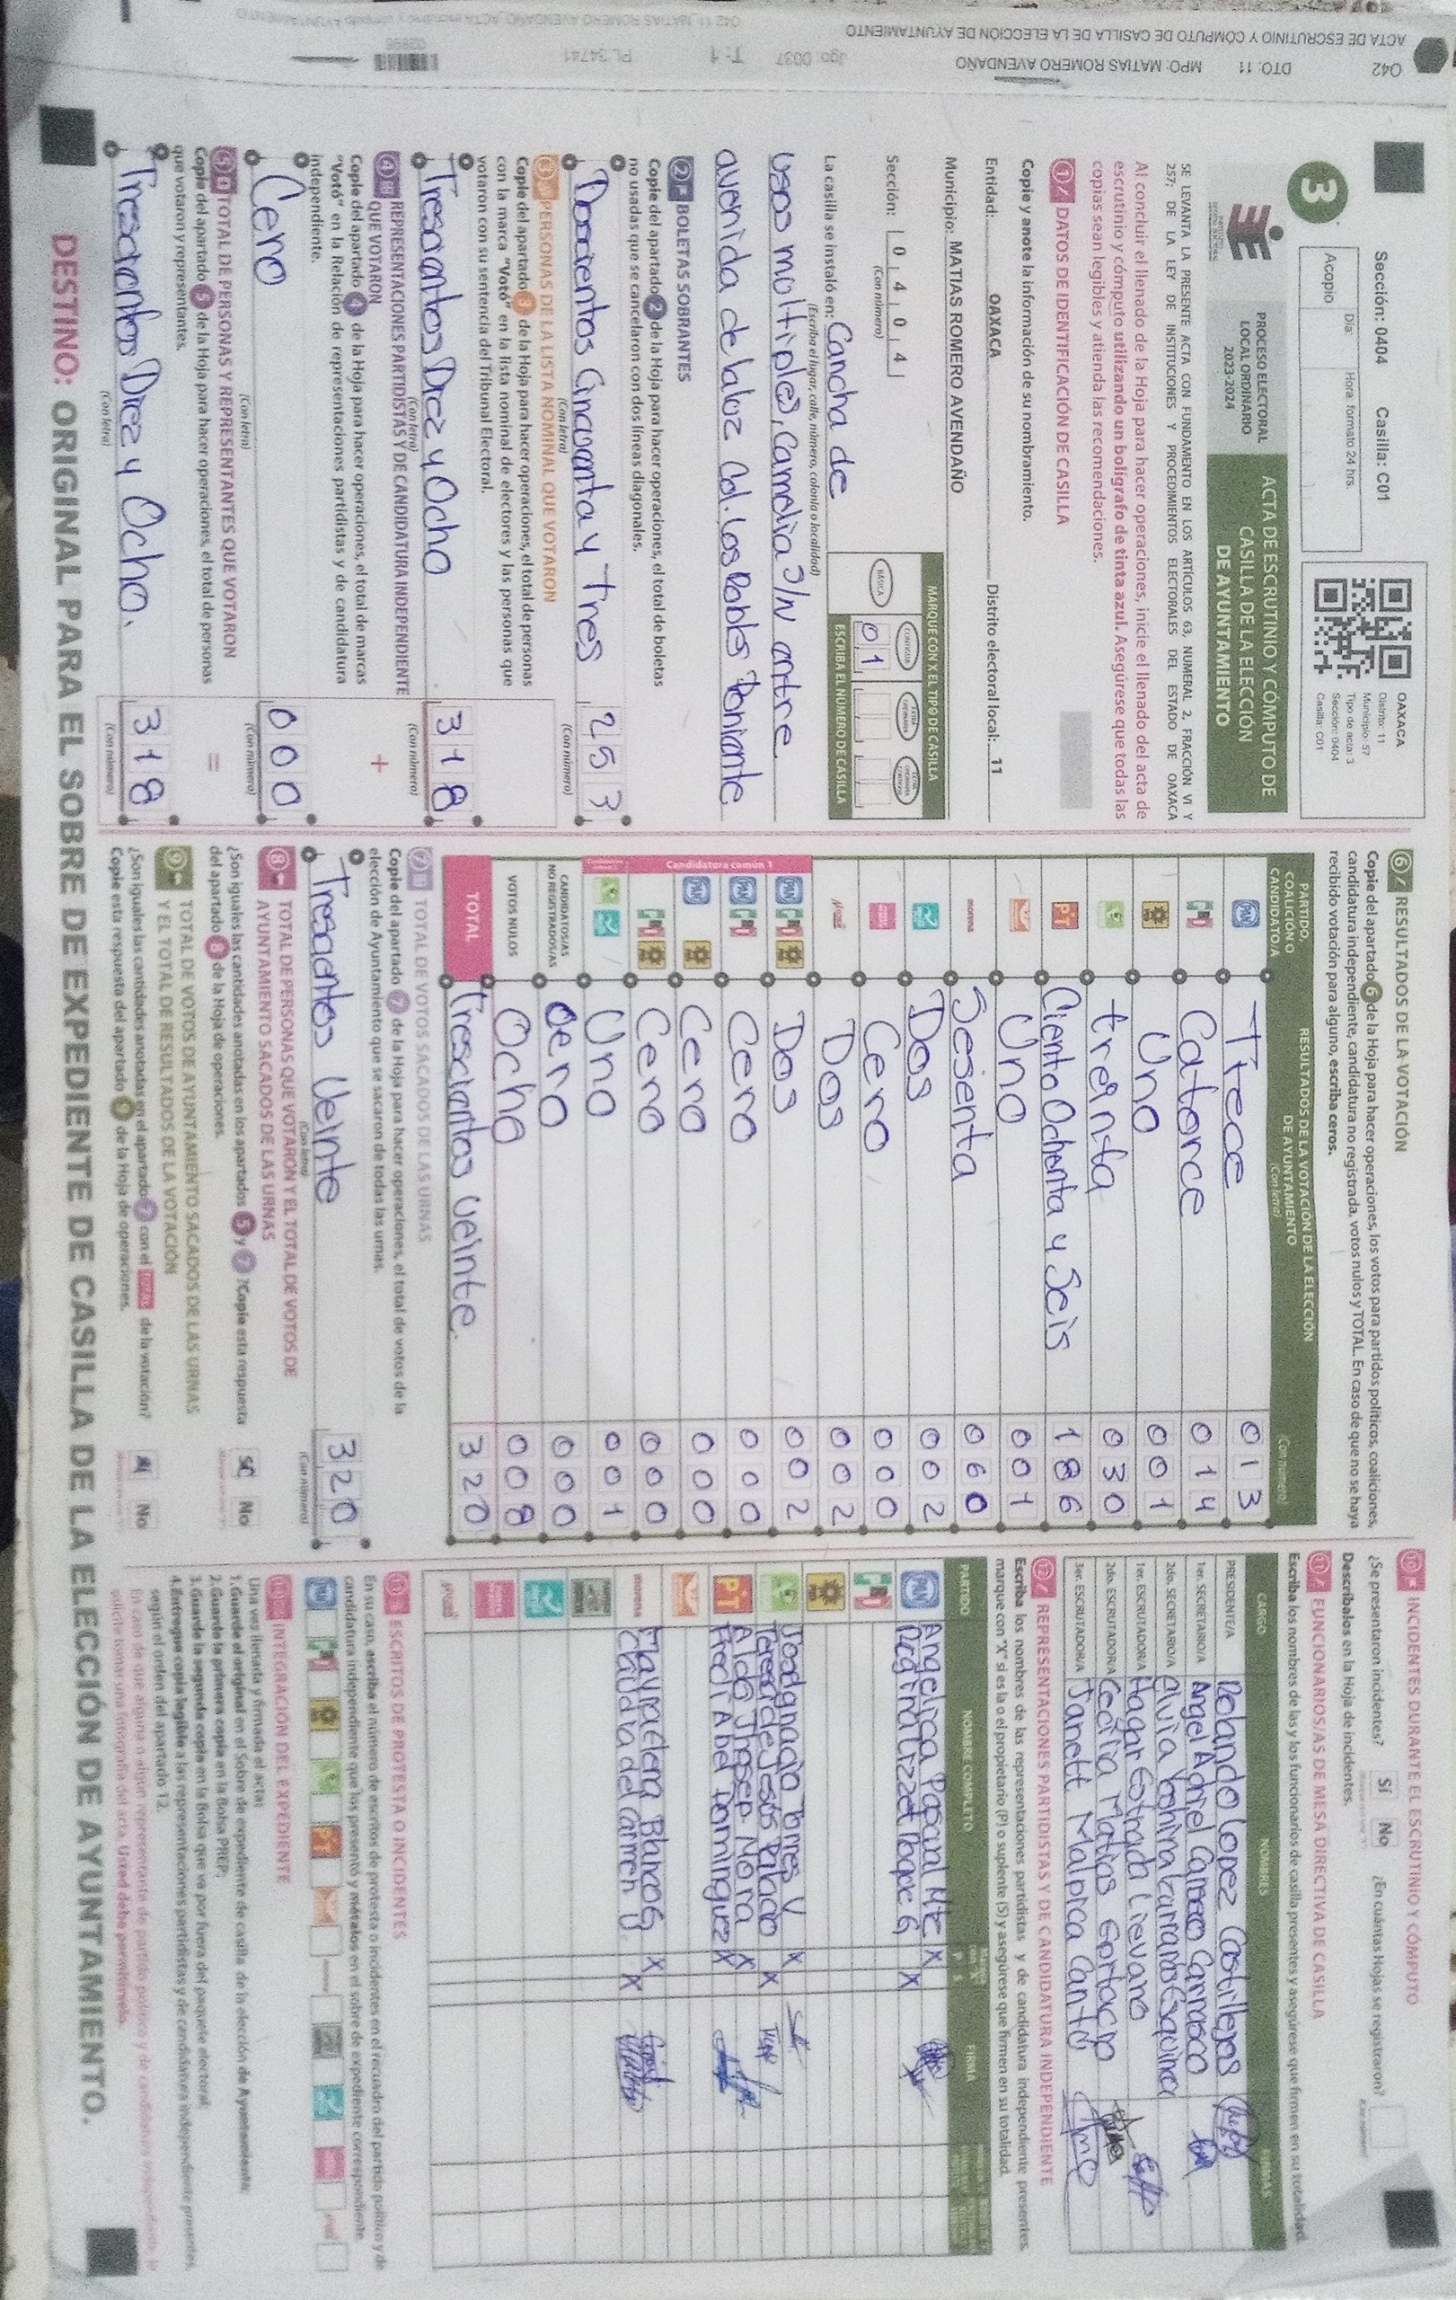 042 DTO: 11 MPO: MATIAS ROMERO AVENDAÑO Jgo: 0037 T: 1 PL:34741
ACTA DE ESCRUTINIO Y CÓMPUTO DE CASILLA DE LA ELECCIÓN DE AYUNTAMIENTO
Sección: 0404 Casilla: C01
Día: Hora: formato 24 hrs.
Acopio
OAXACA
Distrito: 11
Municipio: 57
Tipo de acta: 3
Sección: 0404
Casilla: C01
3
PROCESO ELECTORAL
LOCAL ORDINARIO
2023-2024
ACTA DE ESCRUTINIO Y CÓMPUTO DE
CASILLA DE LA ELECCIÓN
DE AYUNTAMIENTO
SE LEVANTA LA PRESENTE ACTA CON FUNDAMENTO EN LOS ARTÍCULOS 63, NUMERAL 2, FRACCIÓN VI Y
257; DE LA LEY DE INSTITUCIONES Y PROCEDIMIENTOS ELECTORALES DEL ESTADO DE OAXACA
Al concluir el llenado de la Hoja para hacer operaciones, inicie el llenado del acta de
escrutinio y cómputo utilizando un bolígrafo de tinta azul. Asegúrese que todas las
copias sean legibles y atienda las recomendaciones.
1 DATOS DE IDENTIFICACIÓN DE CASILLA
Copie y anote la información de su nombramiento.
Entidad: OAXACA Distrito electoral local: 11
Municipio: MATIAS ROMERO AVENDAÑO
Sección: 0 4 0 4
(Con número)
MARQUE CON X EL TIPO DE CASILLA
BÁSICA CONTIGUA
0 1
ESCRIBA EL NÚMERO DE CASILLA
La casilla se instaló en: Cancha de
(Escriba el lugar, calle, número, colonia o localidad)
usos moltiples, Camelia S/N antre
avenida de la luz Col. Los Robles Poniante
2 BOLETAS SOBRANTES
Copie del apartado 2 de la Hoja para hacer operaciones, el total de boletas
no usadas que se cancelaron con dos líneas diagonales.
Doscientos Cincuenta y Tres 253
(Con letra) (Con número)
3 PERSONAS DE LA LISTA NOMINAL QUE VOTARON
Copie del apartado 3 de la Hoja para hacer operaciones, el total de personas
con la marca "Votó" en la lista nominal de electores y las personas que
votaron con su sentencia del Tribunal Electoral.
Trescientos Diez y Ocho 318
(Con letra) (Con número)
4 REPRESENTACIONES PARTIDISTAS Y DE CANDIDATURA INDEPENDIENTE
QUE VOTARON
+
Copie del apartado 4 de la Hoja para hacer operaciones, el total de marcas
"Votó" en la Relación de representaciones partidistas y de candidatura
independiente.
Cero 000
(Con letra) (Con número)
5 TOTAL DE PERSONAS Y REPRESENTANTES QUE VOTARON
=
Copie del apartado 5 de la Hoja para hacer operaciones, el total de personas
que votaron y representantes.
Trescientos Diez y Ocho. 318
(Con letra) (Con número)
6 RESULTADOS DE LA VOTACIÓN
Copie del apartado 6 de la Hoja para hacer operaciones, los votos para partidos políticos, coaliciones,
candidatura independiente, candidatura no registrada, votos nulos y TOTAL. En caso de que no se haya
recibido votación para alguno, escriba ceros.
PARTIDO,
COALICIÓN O
CANDIDATO/A
RESULTADOS DE LA VOTACIÓN DE LA ELECCIÓN
DE AYUNTAMIENTO
(Con letra) (Con número)
PAN Trece 013
PRI Catorce 014
Uno 001
Treinta 030
PT Ciento Ochenta y Seis 186
Uno 001
morena Sesenta 060
Dos 002
Cero 000
Dos 002
Candidatura común 1
PAN PRI Dos 002
PAN PRI Cero 000
PAN Cero 000
PRI Cero 000
Uno 001
CANDIDATOS/AS
NO REGISTRADOS/AS Cero 000
VOTOS NULOS Ocho 008
TOTAL Trescientos Veinte. 320
7 TOTAL DE VOTOS SACADOS DE LAS URNAS
Copie del apartado 7 de la Hoja para hacer operaciones, el total de votos de la
elección de Ayuntamiento que se sacaron de todas las urnas.
Trescientos Veinte 320
(Con letra) (Con número)
8 TOTAL DE PERSONAS QUE VOTARON Y EL TOTAL DE VOTOS DE
AYUNTAMIENTO SACADOS DE LAS URNAS
¿Son iguales las cantidades anotadas en los apartados 5 y 7? Copie esta respuesta
del apartado 8 de la Hoja de operaciones. No
9 TOTAL DE VOTOS DE AYUNTAMIENTO SACADOS DE LAS URNAS
Y EL TOTAL DE RESULTADOS DE LA VOTACIÓN
¿Son iguales las cantidades anotadas en el apartado 7 con el TOTAL de la votación?
Copie esta respuesta del apartado 9 de la Hoja de operaciones. No
10 INCIDENTES DURANTE EL ESCRUTINIO Y CÓMPUTO
¿Se presentaron incidentes? Sí No ¿En cuántas Hojas se registraron?
Descríbalos en la Hoja de incidentes.
11 FUNCIONARIOS/AS DE MESA DIRECTIVA DE CASILLA
Escriba los nombres de las y los funcionarios de casilla presentes y asegúrese que firmen en su totalidad.
CARGO NOMBRES FIRMAS
PRESIDENTE/A Rolando Lopez Castillejos
1er. SECRETARIO/A Angel Adriel Carrasco
2do. SECRETARIO/A Elvia
1er. ESCRUTADOR/A Hagar Estrada Lievano
2do. ESCRUTADOR/A Cecilia Matias
3er. ESCRUTADOR/A Janett Malpica Cantú
12 REPRESENTACIONES PARTIDISTAS Y DE CANDIDATURA INDEPENDIENTE
Escriba los nombres de las representaciones partidistas y de candidatura independiente presentes,
marque con "X" si es la o el propietario (P) o suplente (S) y asegúrese que firmen en su totalidad.
PARTIDO NOMBRE COMPLETO P S FIRMA
PAN Angelica Pascual Mte X
Lizzet Roque G X
Jose Ignacio Torres V X
Teresa de Jesus Palacio X
PT Aldo Jhosep Mora X
Fredi Abel Dominguez X
morena Mayra Elena Blancos G X
Claudia del Carmen U. X
13 ESCRITOS DE PROTESTA O INCIDENTES
En su caso, escriba el número de escritos de protesta o incidentes en el recuadro del partido político y de
candidatura independiente que los presentó y métalos en el sobre de expediente correspondiente.
14 INTEGRACIÓN DEL EXPEDIENTE
Una vez llenada y firmada el acta:
1. Guarde el original en el Sobre de expediente de casilla de la elección de Ayuntamiento;
2. Guarde la primera copia en la Bolsa PREP;
3. Guarde la segunda copia en la Bolsa que va por fuera del paquete electoral
4. Entregue copia legible a las representaciones partidistas y de candidatura independiente presentes,
según el orden del apartado 12.
DESTINO: ORIGINAL PARA EL SOBRE DE EXPEDIENTE DE CASILLA DE LA ELECCIÓN DE AYUNTAMIENTO.